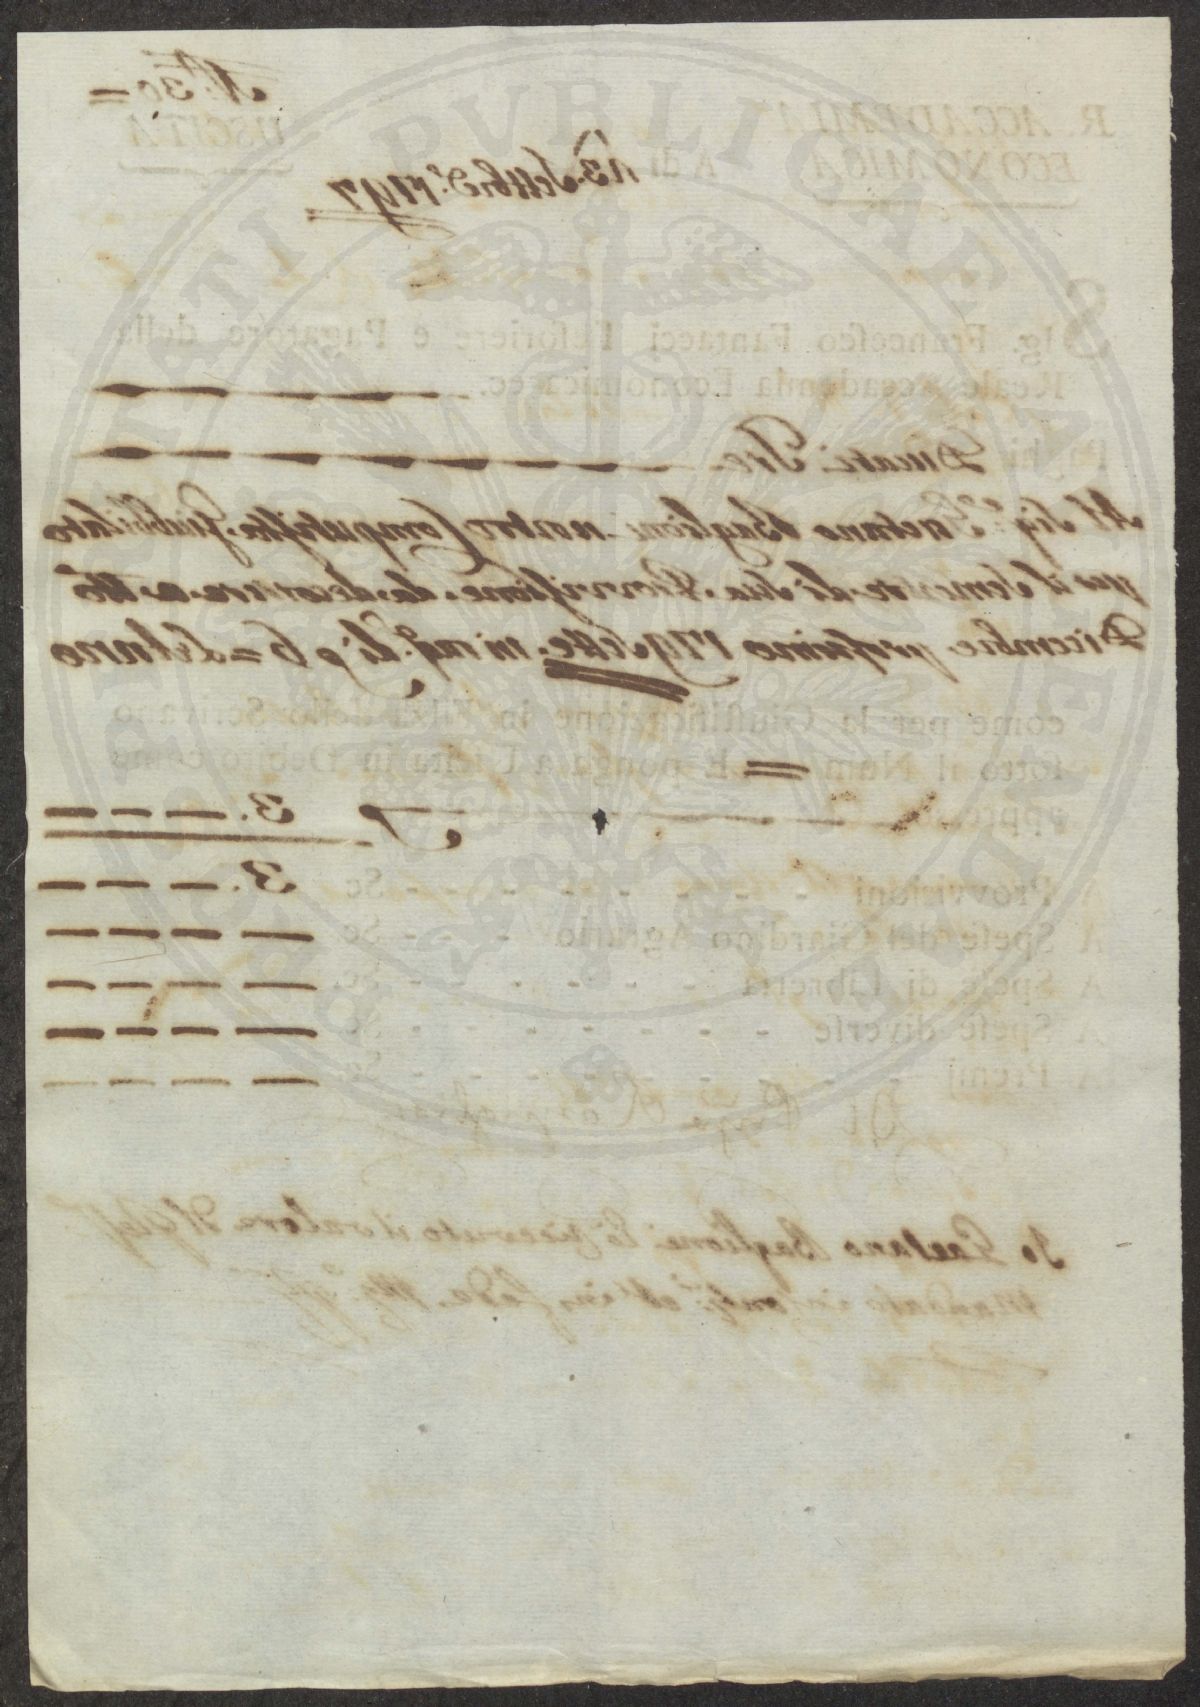 R. ACCADEMIA
ECONOMICA
N.° 30 =
USCITA
A dì 13. Settbre 1797
Sig. Francesco Fantacci Tesoriere e Pagatore della
Reale Accademia Economica ec.
Paghi Ducati Tre
Al Sigr. Gaetano Baglioni nostro Computista Giubbilato
per il Semestre di sua Provvisione da decorrere a tto
Dicembre prossimo 1797 in rag. di 6 = l'Anno
come per la Giustificazione in Filza dello Scrivano
sotto il Num. = E ponga a Uscita in Debito come
appresso
3. — — — —
A Provvisioni - - - - - - Sc. 3. — — —
A Spese del Giardino Agrario - - - Sc. — — — —
A Spese di Libreria - - - - - - Sc. — — — —
A Spese diverse - - - - - - Sc. — — — —
A Premj - - - - - - - Sc. — — — —
Io Gaetano Baglioni ò ricevuto il valore
mandato in fede